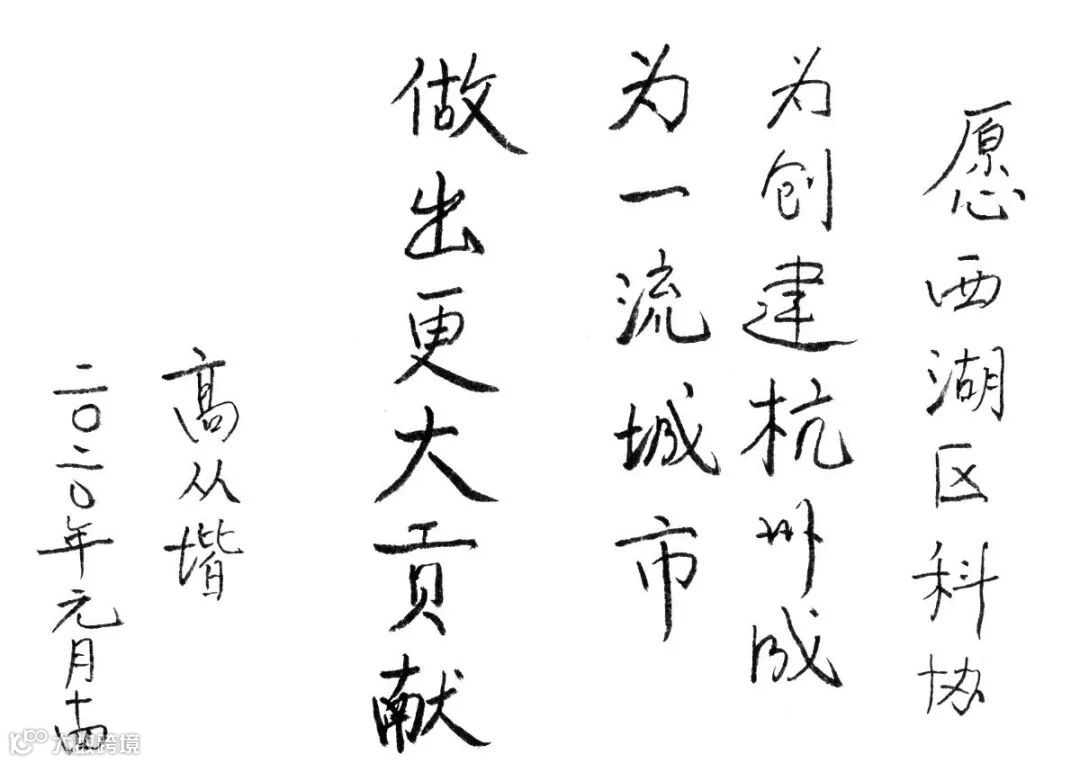 愿西湖区科协
为创建杭州成
为一流城市
做出更大贡献
高从堦
二〇二〇年元月十四
大数跨境